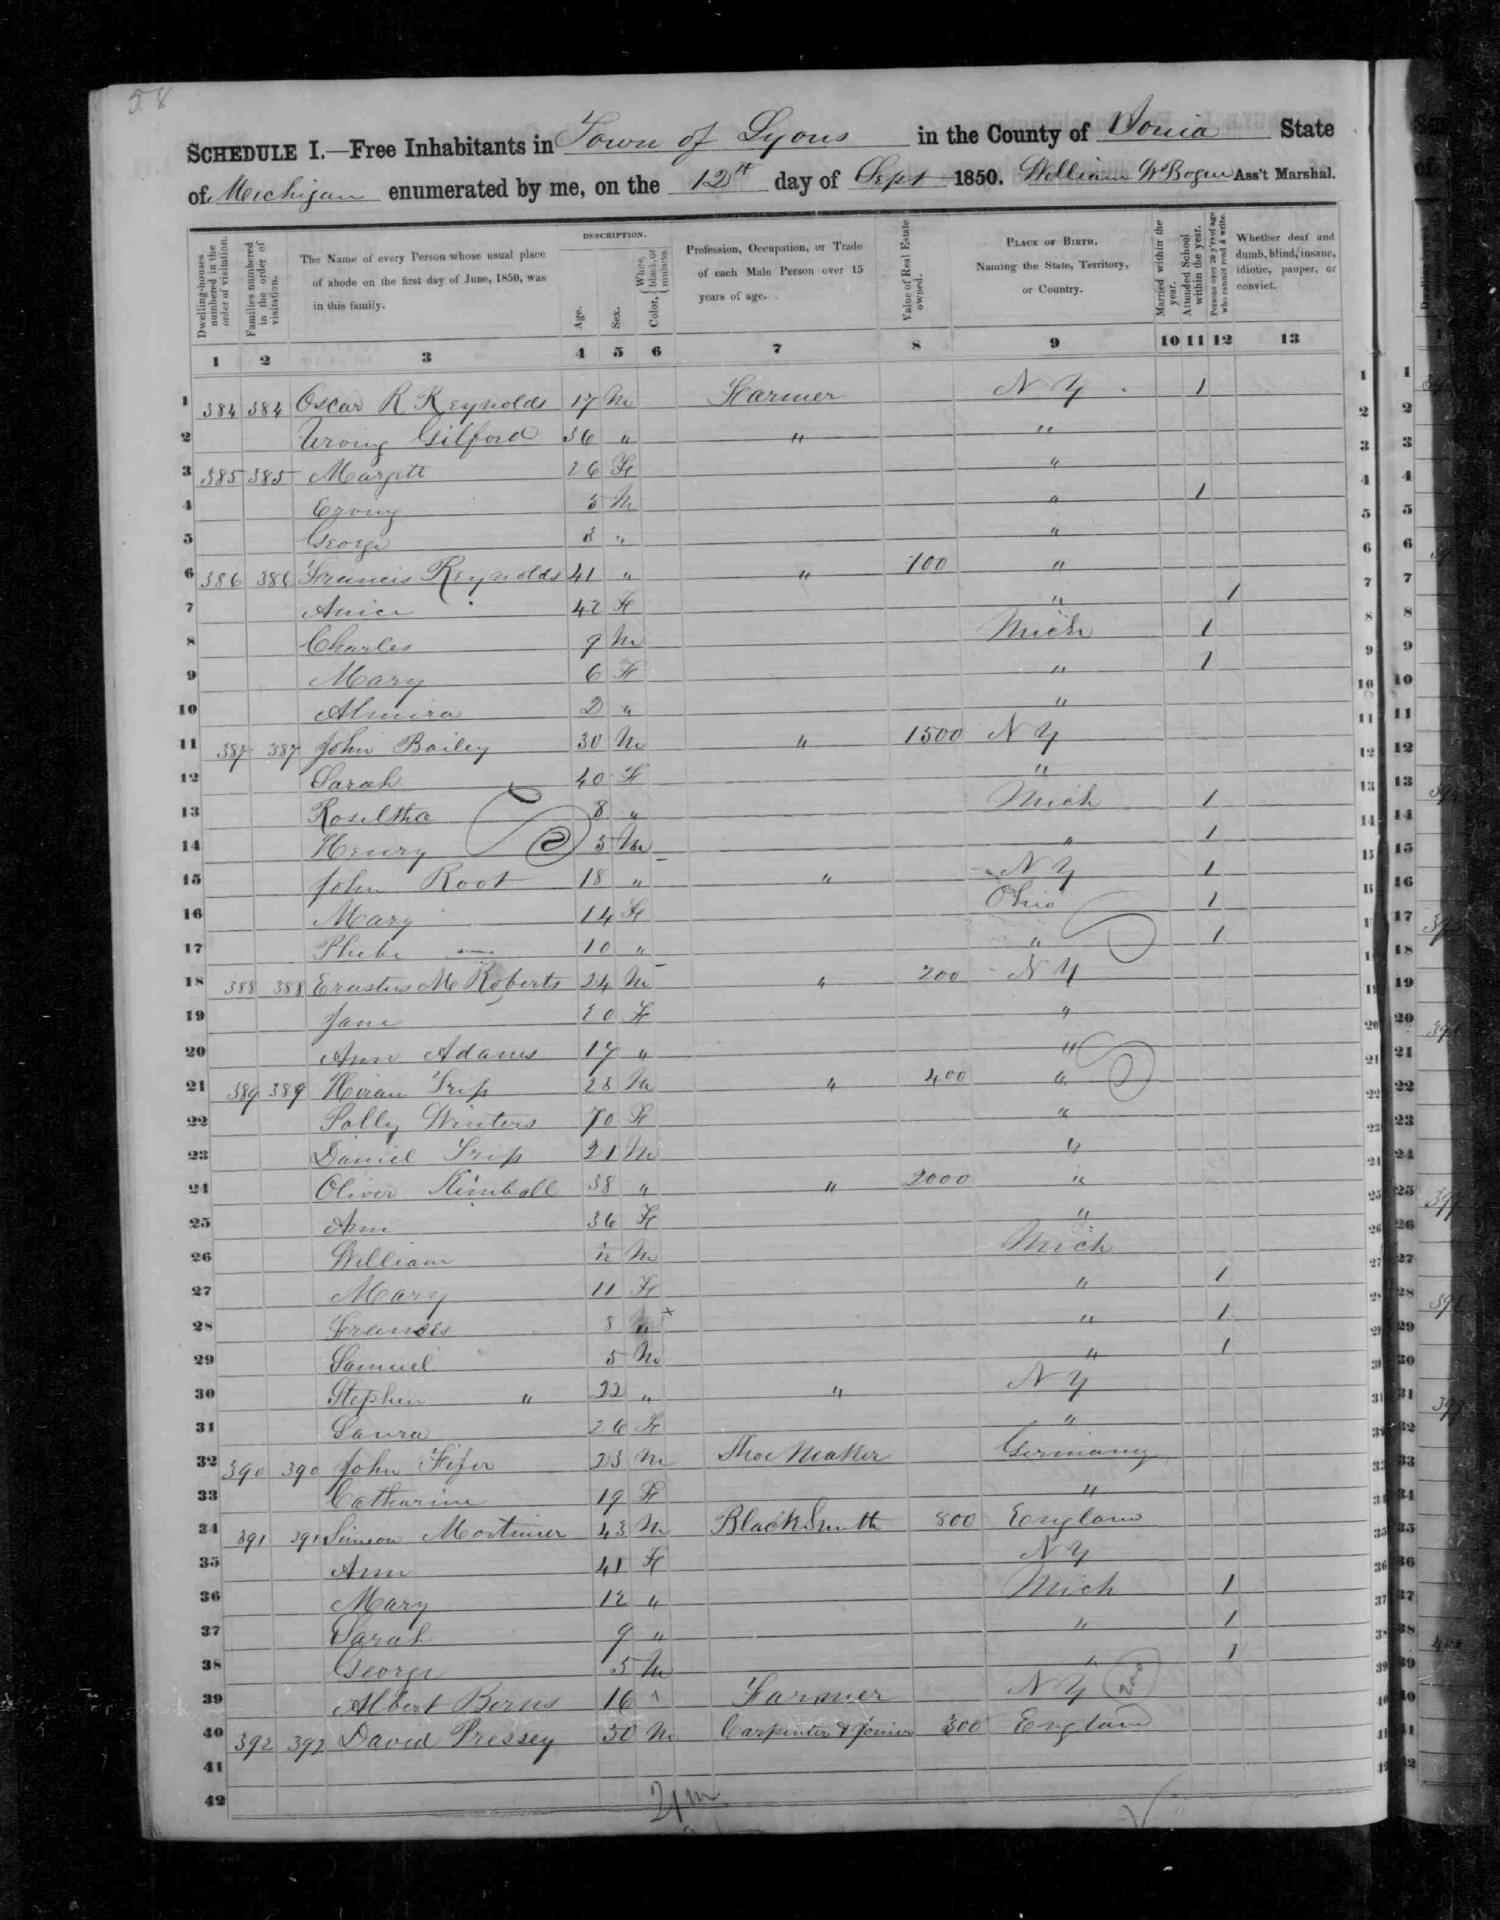 58
SCHEDULE I.—Free Inhabitants in Town of Lyons in the County of Ionia State
of Michigan enumerated by me, on the 12th day of Sept 1850. William W Bogue Ass't Marshal.
DESCRIPTION.
Dwelling-houses numbered in the order of visitation.
Families numbered in the order of visitation.
The Name of every Person whose usual place of abode on the first day of June, 1850, was in this family.
Age.
Sex.
Color, { White, black, or mulatto.
Profession, Occupation, or Trade of each Male Person over 15 years of age.
Value of Real Estate owned.
PLACE OF BIRTH. Naming the State, Territory, or Country.
Married within the year.
Attended School within the year.
Persons over 20 y'rs of age who cannot read & write.
Whether deaf and dumb, blind, insane, idiotic, pauper, or convict.
1 2 3 4 5 6 7 8 9 10 11 12 13
1 384 384 Oscar R Reynolds 17 M Farmer N Y 1 1
2 Urving Gilford 36 " " " 2
3 385 385 Margett 26 F " 3
4 Erving 5 M " 1 4
5 George 3 " " 5
6 386 386 Francis Reynolds 41 " " 100 " 6
7 42 F " 1 7
8 Charles 9 M Mich 1 8
9 Mary 6 F " 1 9
10 Almira 2 " " 10
11 387 387 John Bailey 30 M " 1500 N Y 11
12 Sarah 40 F " 12
13 Roseltha 8 " Mich 1 13
14 Henry 5 M " 1 14
15 John Root 18 " " N Y 1 15
16 Mary 14 F Ohio 1
17 Phebe 10 " " 1
18 388 388 Erastus Mc Roberts 24 M " 200 N Y
19 Jane 20 F " 19
20 Ann Adams 17 " " 20
21 389 389 Hiram Trip 28 M " 400 " 21
22 Sally Winters 70 F " 22
23 Daniel Trip 21 M " 23
24 Oliver Kimball 38 " " 2000 "
25 Ann 36 F " 25
26 William 12 M Mich 26
27 Mary 11 F " 1 27
28 Frances 8 " x " 1 28
29 Samuel 5 M " 1 29
30 Stephen " 22 " " N Y 30
31 Laura 26 F " 31
32 390 390 John Fifer 23 M Shoe Maker Germany
33 Catharine 19 F "
34 391 391 Simeon Mortimer 43 M BlackSmith 800 England
35 Ann 41 F N Y 35
36 Mary 12 " Mich 1 36
37 Sarah 9 " " 1 37
38 George 5 M " 1
39 Albert Berns 16 " Farmer N Y 39
40 392 392 David Pressey 30 M Carpenter & Joiner 300 England
41
42